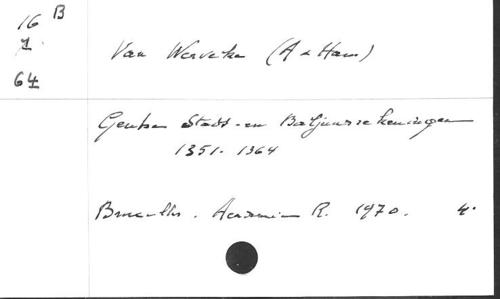 16 B
1.
64
Van Werveke (A & Hans)
Gentse Stads-en Baljuwsrekeningen
1351-1364
Bruxelles. Academie R. 1970. 4°